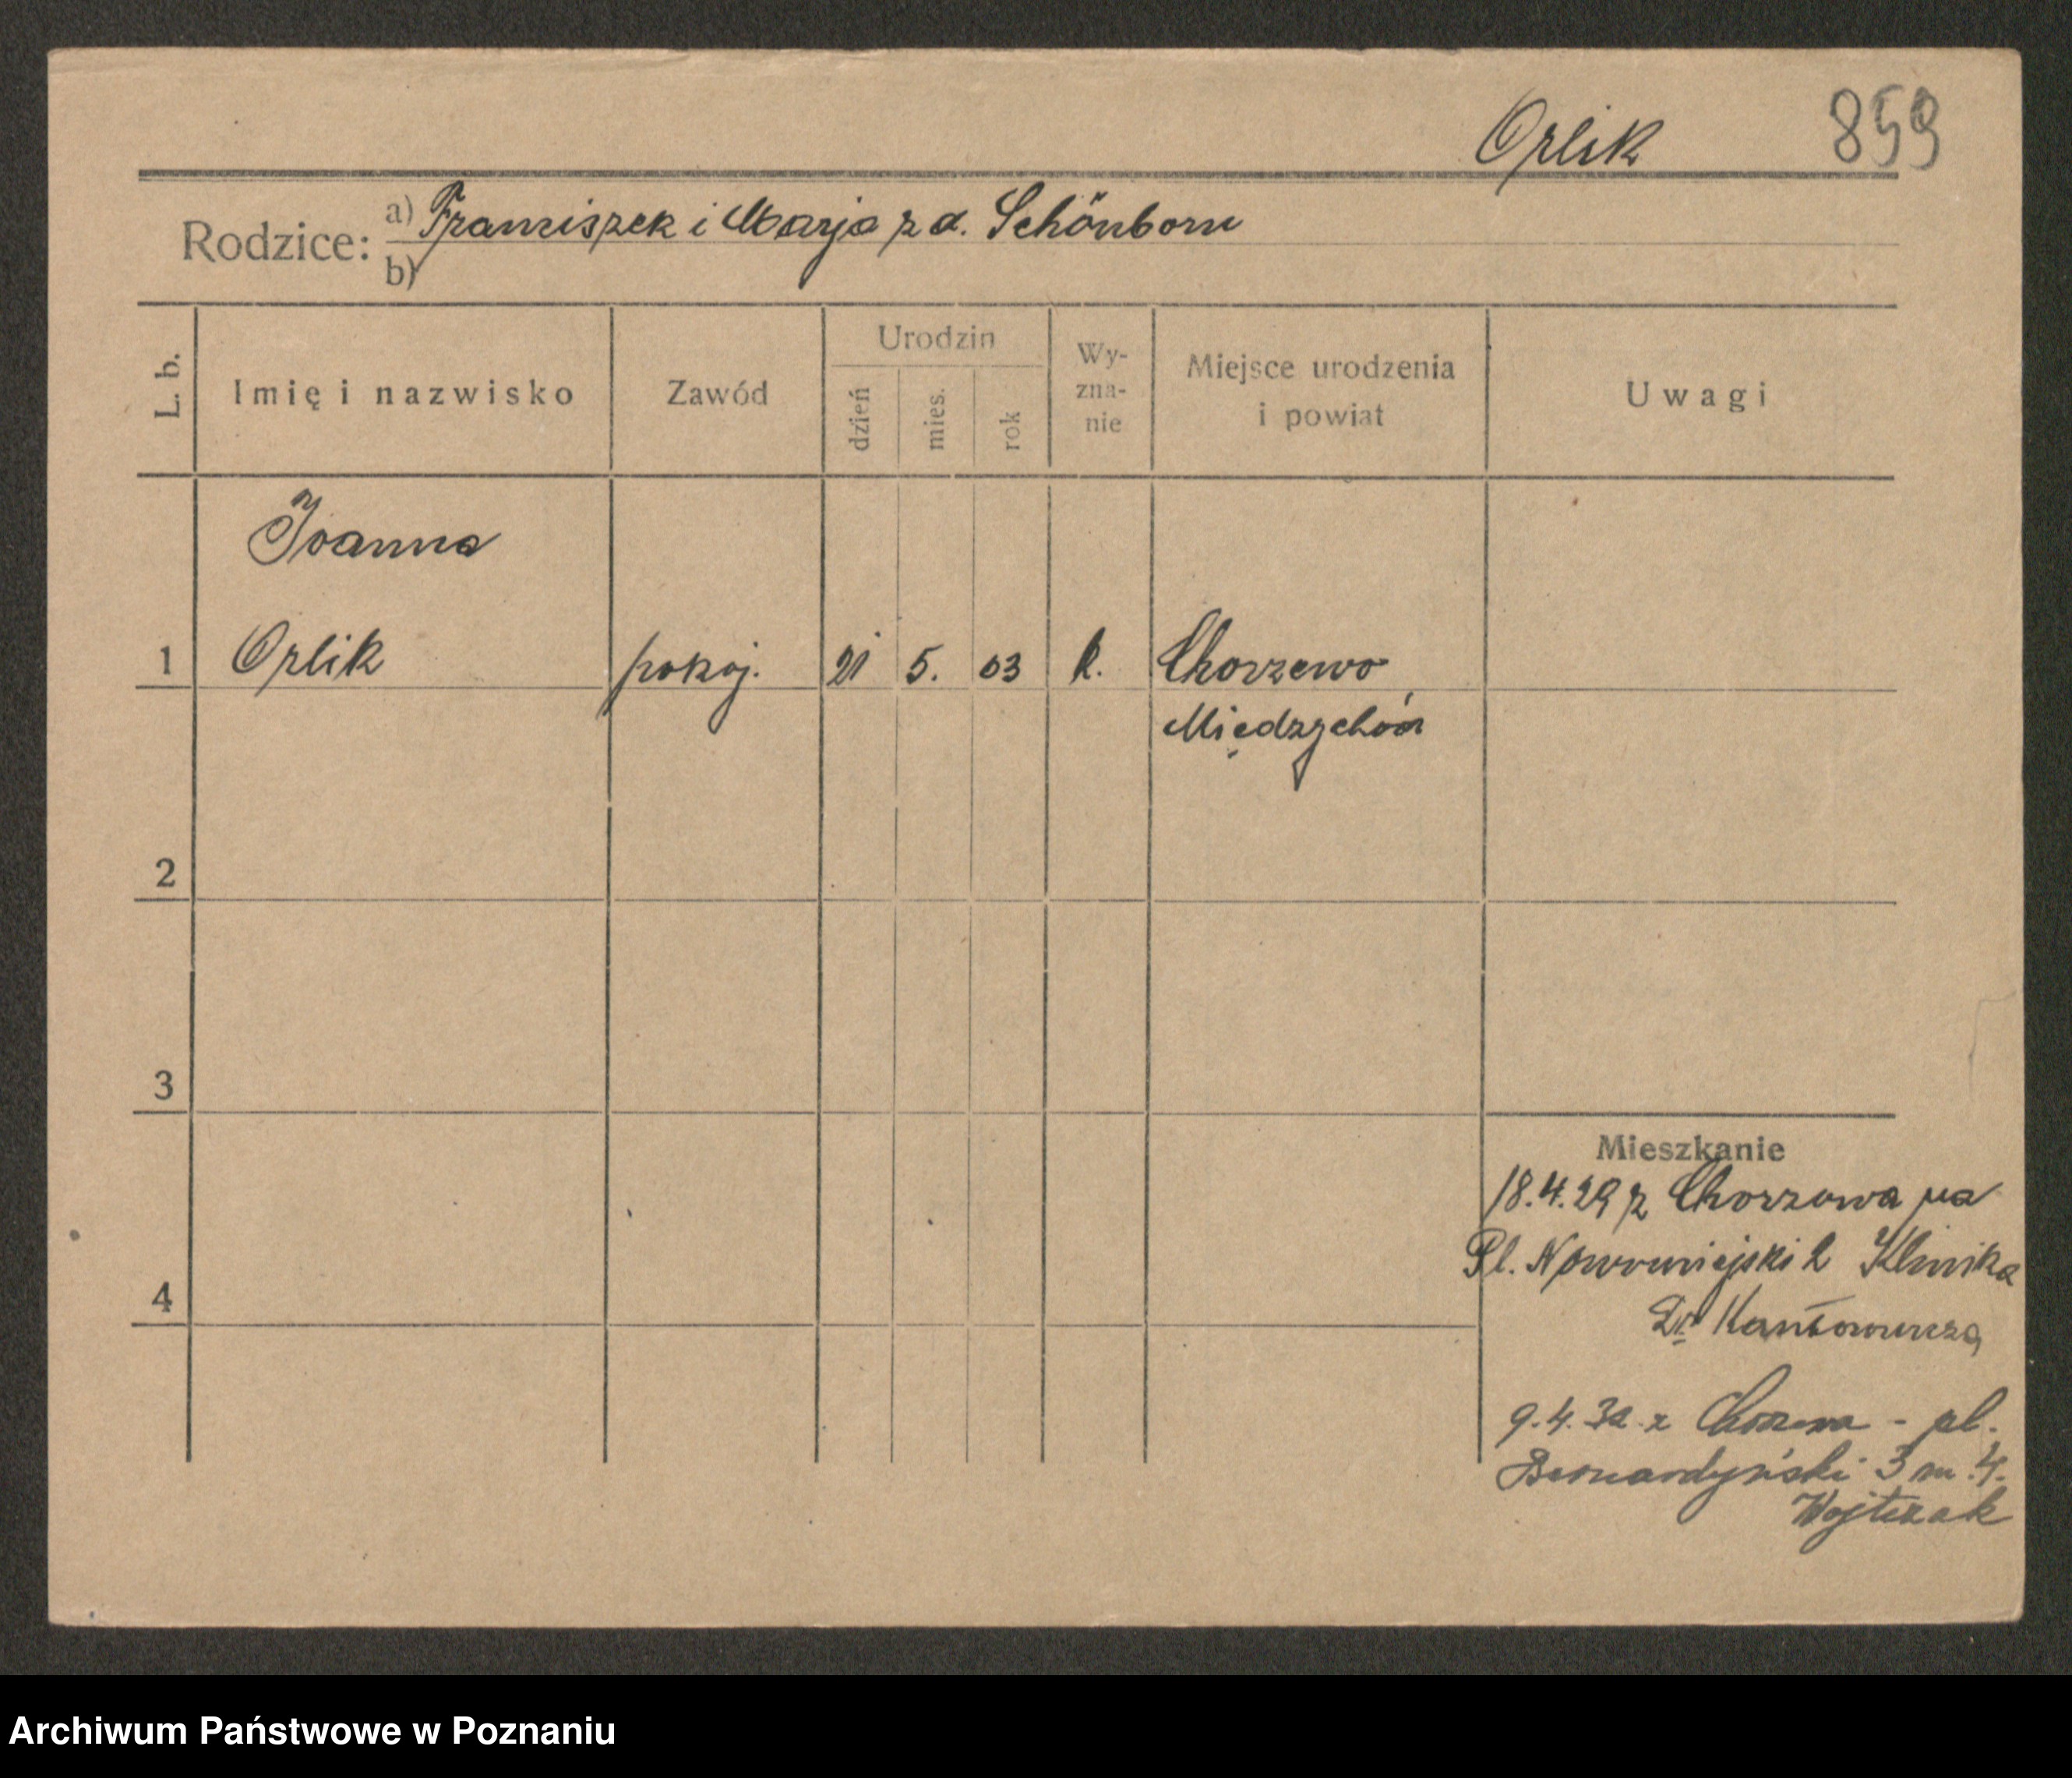 Orlik 859
Rodzice: a) Franciszek i Marja z d. Schönborn
b)
L. b. Imię i nazwisko Zawód Urodzin dzień mies. rok Wy-zna-nie Miejsce urodzenia i powiat Uwagi
Joanna
1 Orlik pokoj. 21 5. 03 k. Chorzewo
Międzychód
2
3
4
Mieszkanie
18.4.29 z Chorzowa na
Pl. Nowomiejski 2 Klinika
Dr. Kantorowicza
9.4.32 z - pl.
Bernardyński 3 m. 4.
Wojtczak
Archiwum Państwowe w Poznaniu